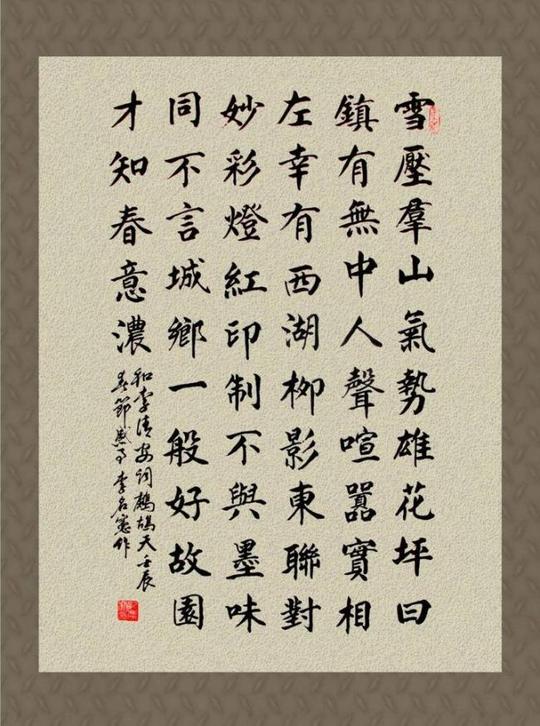 雪壓羣山氣勢雄花坪曰
鎮有無中人聲喧囂實相
左幸有西湖柳影東聯對
妙彩燈紅印制不與墨味
同不言城鄉一般好故園
才知春意濃
和李清安詞鷓鴣天壬辰
春節感事李名作